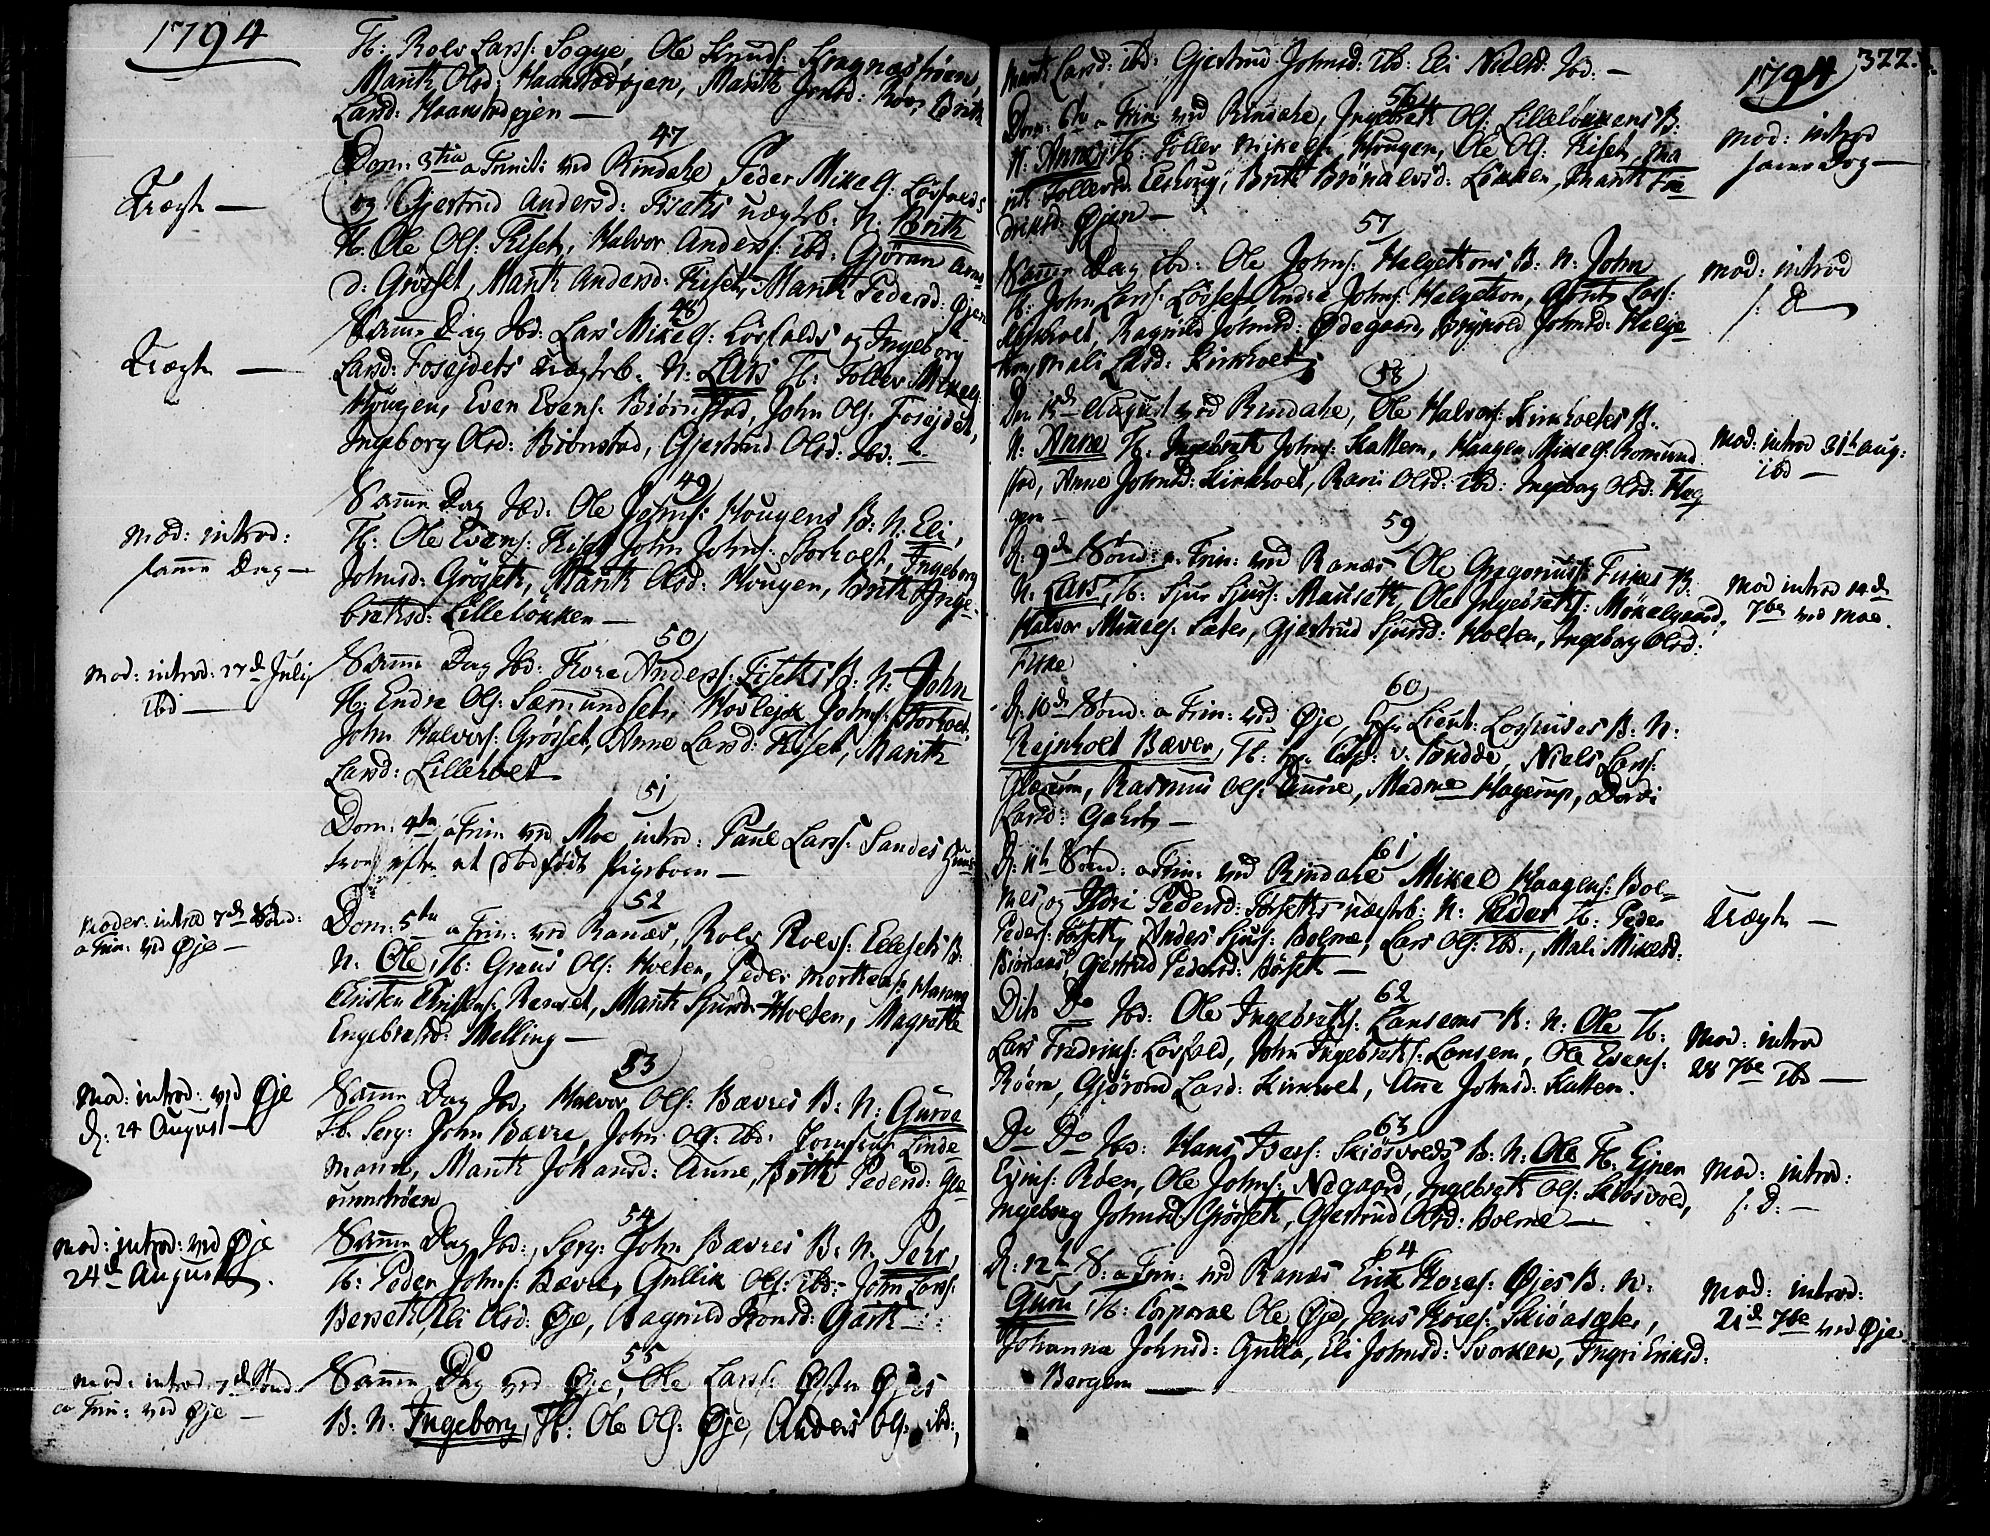 1794
T: Rolv Larss: Sogge, Ole Knuds: Kragnæstrøen,
Marit Olsd: Haanstadøyen, Marit Jonsd: Brit
Larsd: Haanstadøyen —
47
Dom: 3tia a Trinit: ved Rindahl Peder Mikels: Løsfalds
og Gjertrud Andersd: Fisets uægte b: N: Brit
T: Ole Ols: Fiset, Halvor Anders: ibd: Gjøran Arns
d: Grøsset, Marit Andersd: Fiset, Marit Pedersd: Øjen
Uægte —
48
Samme Dag Ibd: Lars Mikels: Løsfalds og Ingeborg
Larsd: Fosejdets uægte b: N: Lars T: Tollev Mikels:
Hougen, Even Evens: Biørnstad, John Ols: Fosejdet,
Ingeborg Olsd: Biønstad, Gjertrud Olsd: Ibd: —
Uægte —
49
Samme Dag Ibd: Ole Johns: Hougens B: N: Eli,
T: Ole Evens: Fiset John Johns: Storholt, Ingeborg
Johnsd: Grøsset, Marit Olsd: Hougen, Brit Inge-
bretsd: Lilleløkken —
Mod: introd:
samme Dag —
50
Samme Dag Ibd: Tore Anders: Fisets B: N: John
T: Endre Ols: Sæmundset, Hovlejk Johns: Storholt,
John Halvors: Grøsset, Anne Larsd: Fiset, Marit
Larsd: Lilleholt
Mod: introd: 27de Julij
ibd —
51
Dom: 4ta a Trin: ved Moe introd: Paul Larss: Sandes
hvor efter et dødfødt pigebarn —
52
Dom: 5ta a Trin: ved Ranæs, Rolv Rolvs: Ellesets B:
N: Ole, T: Graus Ols: Holten, Peder Mortens: Harang
Christen Christens: Ranset, Marit Sjursd: Holten, Magrette
Engebretsd: Melling —
Moder: introd 7de Sønd:
a Trin: ved Øje —
53
Samme Dag Ibd, Halvor Ols: Bævres B: N: Guroe
T: Serg: John Bævre, John Ols: ibd: Jomfrue Linde-
mann, Marit Johansd: Aune, Brit Pedersd: Glæ-
rumstrøen
Mod: introd: ved Øje
d: 24 August —
54
Samme Dag Ibd: Serg: John Bævres B: N: Pehr,
T: Peder Johns: Bævre, Gullik Ols: ibd: John Larss:
Berset, Eli Olsd: Øje, Ragnild Tronsd: Garte
Mod: introd: ved Øje
24de August.
55
Samme Dag ved Øje, Ole Larss: Østen Øjes
B: N: Ingeborg, T: Ole Ols: Øje, Anders Ols: ibd:,
Mod: introd: 7de Sønd:
a Trin: ved Øje —
1794 322.
Marit Larsd: ibd: Gjertrud Johnsd: ibd: Eli Nielsd: Ibd: —
56
Dom: 6ta a Trin: ved Rindahl, Ingebret Ols: Lilleløkkens B:
N: Anne, T: Tollev Mikels: Hougen, Ole Ols: Fiset, Ma-
rit Tollevsd: Elshoug, Brit Brønalvsd: Løkken, Marit Fre-
driksd: Øjen —
Mod: introd
samme Dag —
57
Samme Dag ibd: Ole Johns: Halgettons B: N: John
T: John Larss: Løsset Endre Johns: Halgetton, Arnt Larss:
Kirkholt, Ragnild Johnsd: Ødegaard, Ingebor Johnsd: Halge-
ton, Mali Larsd: Kirkholt
Mod: introd
s: D
58
Den 15de August ved Rindahl, Ole Halvors: Kirkholtes B:
N: Anne T: Ingebret Johns: Kattem, Haagen Mikels: Romund
stad, Anne Johnsd: Kirkholt, Rani Olsd: ibd: Ingebor Olsd: Flaq
gem —
Mod: introd 31te aug:
ibd —
59
D: 9de Sønd: a Trin: ved Ranæs Ole Gregorius: Fiskes B:
N: Lars, T: Sjur Sjurs: Mauseth, Ole Ingebrets: Mokelgaard,
Halvor Mikels: Sæter, Gjertrud Sjursd: Holten, Ingeborg Olsd:
Fiske
Mod: introd 14de
7br ved Moe.
60
D: 10de Sønd: a Trin: ved Øje, Hr Lieut: Lossiuses B: N:
Rejnholt Bæver, T: Hr. Cap: v: Krudde, Niels Larss:
Glærum, Rasmus Ols: Aune, Madme Hagerup, Dordi
Larsd: Gehrts —
61
D: 11te Sønd: a Trin: ved Rindahl Mikel Haagens: Bol-
mes og Kari Pedersd: Børsets uægte b: N: Peder T: Peder
Peders: Børset, Anders Sjurs: Bolme, Lars Ols: ibd:, Mali Mikelsd:
Biønaas, Gjertrud Pedersd: Børset —
Uægte —
62
Dito Do Ibd: Ole Ingebrets: Lansems B: N: Ole T:
Lars Fredriks: Løsfald, John Ingebrets: Lansem, Ole Evens:
Røen, Gjørond Larsd: Kirkholt, Ane Johnsd: Kattem.
Mod: introd
28 7br ibd —
63
Do Do Ibd: Hans Iters: Skiølsvolds B: N: Ole T: Ejner
Ejners: Røen, Ole Johns: Nægaard, Ingebret Ols: Skiølsvold,
Ingeborg Johnsd: Grøsset, Gjertrud Olsd: Bolme —
Mod: introd:
s: D: —
64
D: 12te S: a Trin: ved Ranæs Erik Tores: Øjes B: N:
Guru T: Corporal Ole Øje, Jens Tores: Skiøasæter,
Johanna Johnsd: Gulla, Eli Johnsd: Svorken, Ingri Eriksd:
Bergem —
Mod: introd:
21de 7br ved Øje